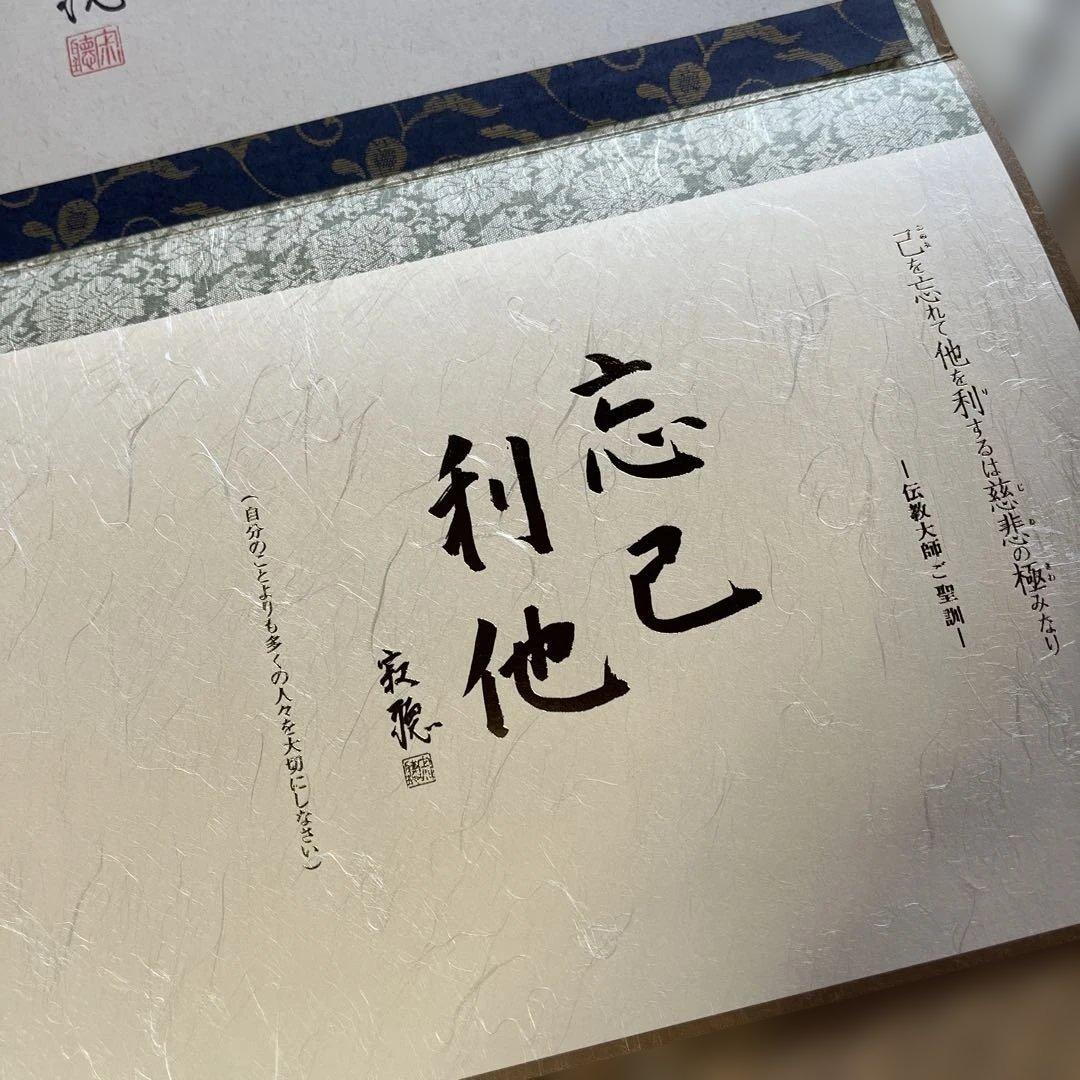 己を忘れて他を利するは慈悲の極みなり
―伝教大師ご聖訓―
忘己
利他
寂聴
(自分のことよりも多くの人々を大切にしなさい)